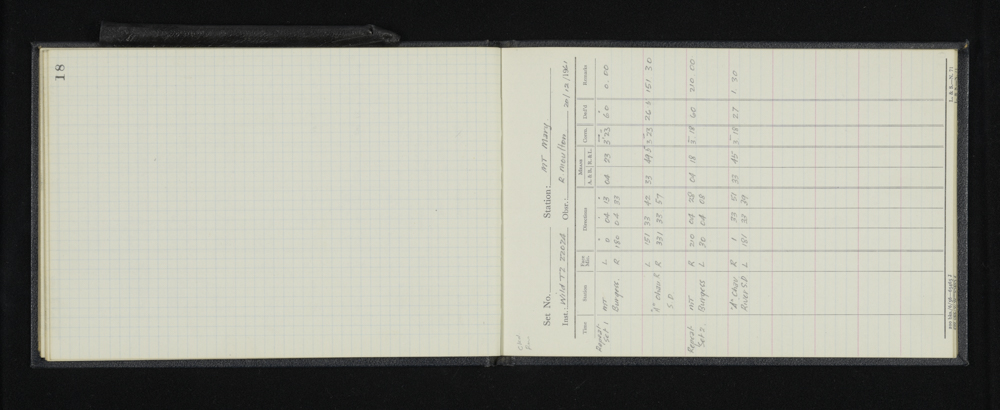 18
Set No. Station: MT Mary
Inst. Wild T2 Obsr.: R Moullen 20/12/1961
Time Station Face Mic. Directions Means A. & B. R. & L. Corrn. Ded'd Remarks
Repeat Set 1 MT L 0 04 13 04 23 3.23 60 0. 00
Burgess. R 180 04 33
L 151 33 42 33 49.5 3.23 26.5 151 30
S.P. R 331 33 57
Repeat Set 2. MT R 210 04 28 04 18 3.18 60 210 00
Burgess L 30 04 08
"A" Chav. R 1 33 51 33 45 3.18 27 1 30
River S.P. L 181 33 39